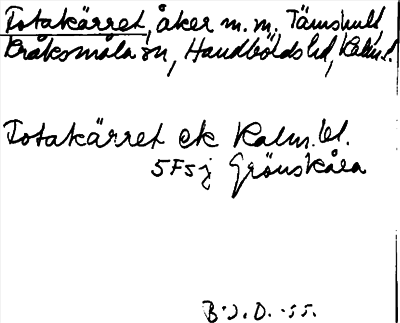 Totakärret, åker m.m. Tämshult,
Kråksmåla sn, Handbörds hd, Kalm.l.
Totakärret ek Kalm. bl.
5F5j Grönskåra
B.J.D. -55.